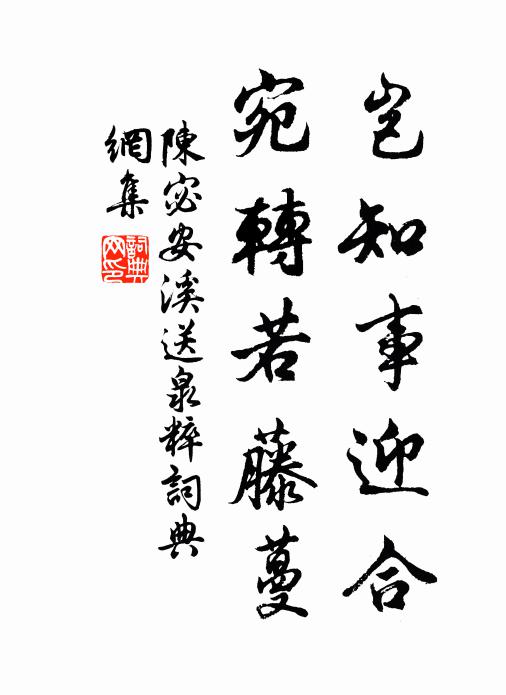 豈知事迎合
宛轉若藤蔓
陳宓安溪送泉粹詞典
網集
詞典網印